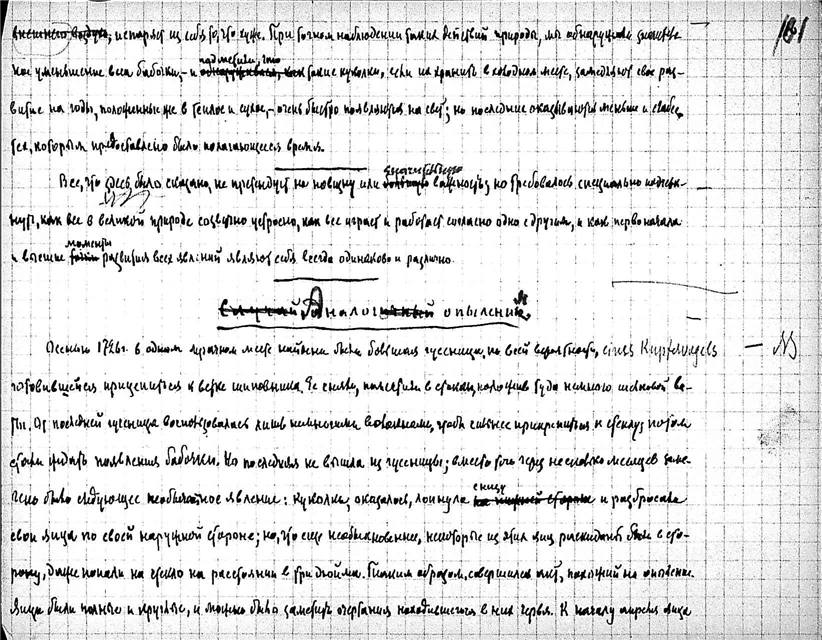 внешнего воздуха; испаряет из себя то, что хуже. При точном наблюдении таких действий природы, мы обнаружили значитель-
161
ное уменьшение веса бабочки, – и подметили, что обнаруживали, как такие куколки, если их хранить в холодном месте, замедляют свое раз-
витие на годы, положенные же в теплое и сухое, – очень быстро появляются на свет; но последние оказываются меньше и слабее
тех, которым предоставлено было полагающееся время.
Все, что здесь было сказано, не претендует на новизну или значительную большую важность; но требовалось специально подчерк-
нуть, как все в великой природе созвучно устроено, как все играет и работает согласно одно с другим, и как первоначала
и высшие моменты развития всех явлений являют себя всегда одинаково и различно.
случай Аналог опыления
Осенью 1726 г. в одном мрачном месте найдена была большая гусеница, по всей вероятности, eines Kupfervogels
NB
готовившейся прицепиться к ветке шиповника. Ее сняли, поместили в стакан, положив туда немного шелковой ва-
ты. Из последней гусеница воспользовалась лишь немногими волокнами, чтобы сильнее прикрепиться к стеклу; потом
стали ждать появления бабочки. Но последняя не вышла из гусеницы; вместо того через несколько месяцев заме-
чено было следующее необычайное явление: куколка, оказалось, лопнула снизу на нижней стороне и разбросала
свои яйца по своей наружной стороне; но, что еще необыкновеннее, некоторые из этих яиц раскиданы были в сто-
рону, даже попали на стекло на расстоянии в три дюйма. Таким образом, совершился акт, похожий на опыление.
Яйца были полные и круглые, и можно было заметить очертания находившегося в них червя. К началу апреля яйца